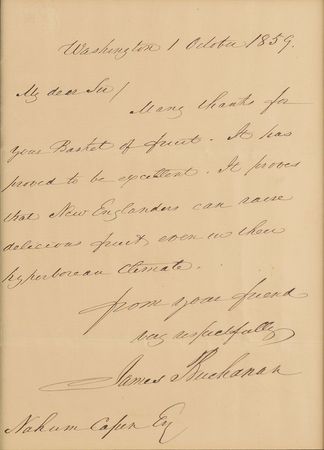 Washington 1 October 1859.
My dear Sir/
Many thanks for
your Basket of fruit. It has
proved to be excellent. It proves
that New Englanders can raise
delicious fruit even in their
hyperborean climate.
from your friend
very respectfully
James Buchanan
Nahum Capen Esq